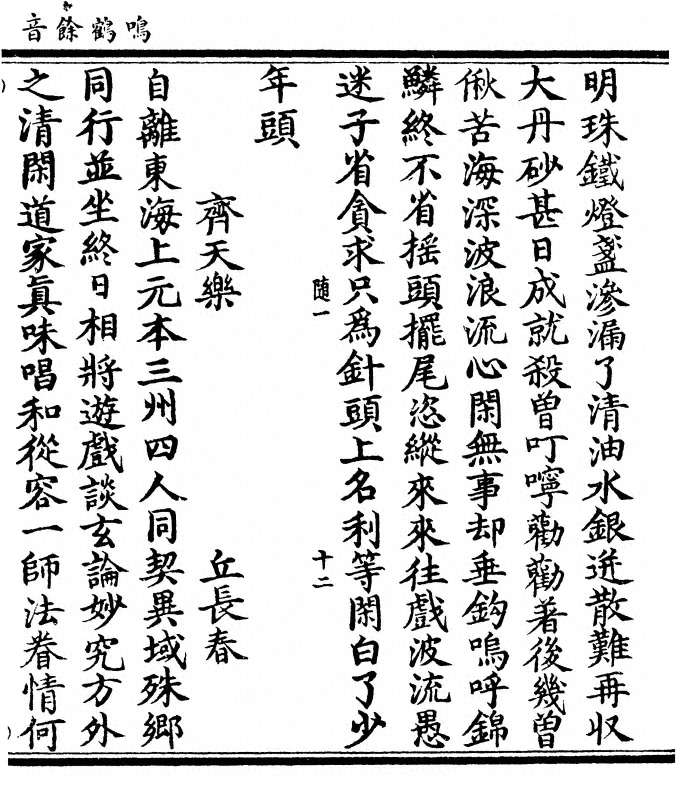 鳴鶴餘音
明珠鐵燈盞滲漏了清油水銀迸散難再収
大丹砂甚日成就殺曽叮嚀勸勸著後幾曽
偢苦海深波浪流心閑無事却垂鈎嗚呼錦
鱗終不省摇頭擺尾恣縱來來往戲波流愚
迷子省貪求只為針頭上名利等閑白了少
随一　十二
年頭
齊天樂　丘長春
自離東海上元本三州四人同契異域殊鄉
同行並坐終日相將遊戲談玄論妙究方外
之清閑道家眞味唱和從容一師法眷情何